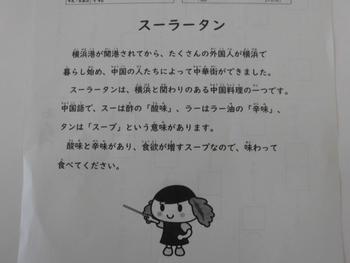 スーラータン
横浜港が開港されてから、たくさんの外国人が横浜で
暮らし始め、中国の人たちによって中華街ができました。
スーラータンは、横浜と関わりのある中国料理の一つです。
中国語で、スーは酢の「酸味」、ラーはラー油の「辛味」、
タンは「スープ」という意味があります。
酸味と辛味があり、食欲が増すスープなので、味わって
食べてください。